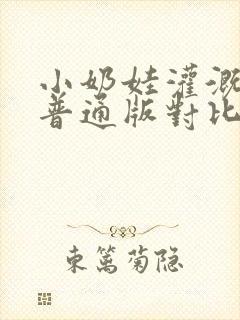 小奶娃灌溉
普通版對比
東篱菊隐